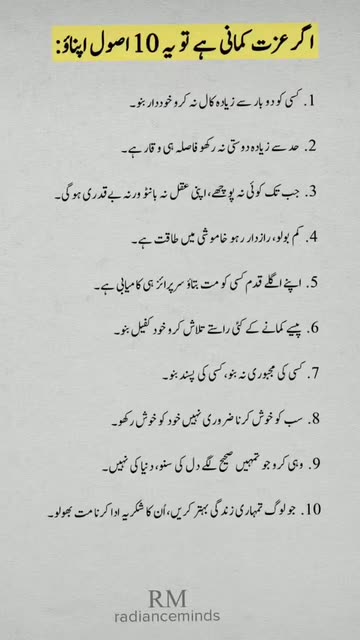 اگر عزت کمانی ہے تو یہ 10 اصول اپناؤ:
1. کسی کو دو بار سے زیادہ کال نہ کرو خوددار بنو۔
2. حد سے زیادہ دوستی نہ رکھو فاصلہ ہی وقار ہے۔
3. جب تک کوئی نہ پوچھے، اپنی عقل نہ بانٹو ورنہ بے قدری ہوگی۔
4. کم بولو، رازدار رہو خاموشی میں طاقت ہے۔
5. اپنے اگلے قدم کسی کو مت بتاؤ سرپرائز ہی کامیابی ہے۔
6. پیسے کمانے کے کئی راستے تلاش کرو خود کفیل بنو۔
7. کسی کی مجبوری نہ بنو، کسی کی پسند بنو۔
8. سب کو خوش کرنا ضروری نہیں خود کو خوش رکھو۔
9. وہی کرو جو تمہیں صحیح لگے دل کی سنو، دنیا کی نہیں۔
10. جو لوگ تمہاری زندگی بہتر کریں، اُن کا شکریہ ادا کرنا مت بھولو۔
RM
radianceminds